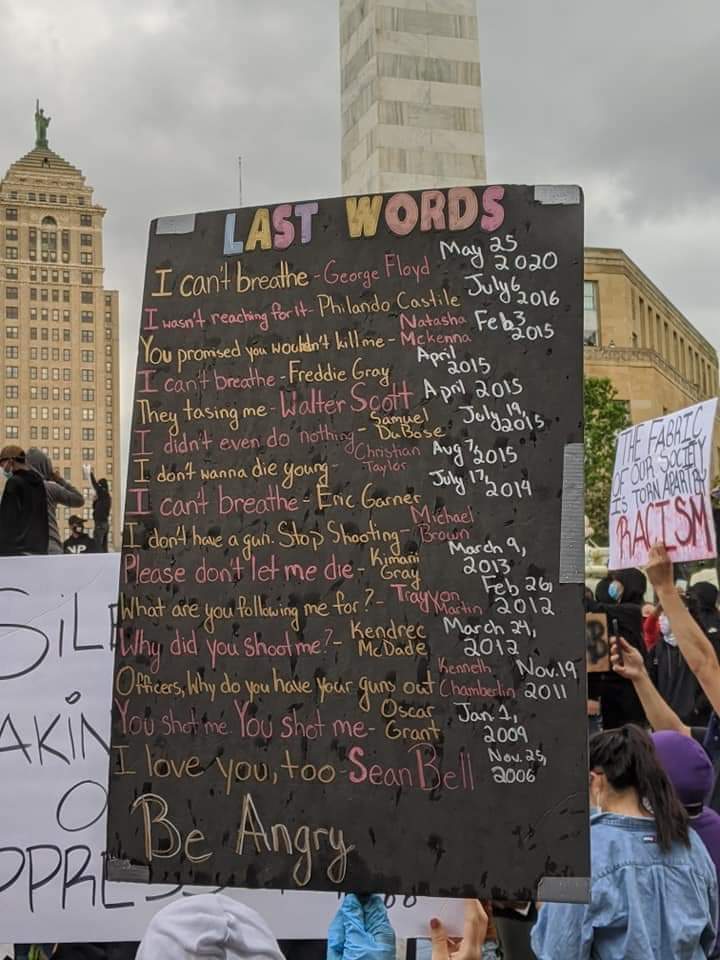 LAST WORDS
I can't breathe - George Floyd May 25 2020
I wasn't reaching for it - Philando Castile July 6 2016
You promised you wouldn't kill me - Natasha Mckenna Feb 3 2015
I can't breathe - Freddie Gray April 2015
They tasing me - Walter Scott April 2015
I didn't even do nothing - Samuel DuBose July 19, 2015
I don't wanna die young - Christian Taylor Aug 7 2015
I can't breathe - Eric Garner July 17, 2014
I don't have a gun. Stop Shooting - Michael Brown
Please don't let me die - Kimani Gray March 9, 2013
What are you following me for? - Trayvon Martin Feb 26, 2012
Why did you shoot me? - Kendrec McDade March 24, 2012
Officers, Why do you have your guns out Kenneth Chamberlin Nov. 19 2011
You shot me. You shot me - Oscar Grant Jan 1, 2009
I love you, too - Sean Bell Nov. 25, 2006
Be Angry
THE FABRIC
OF OUR SOCIETY
IS TORN APART BY
RACISM
SiL
AKiN
O
PPRE